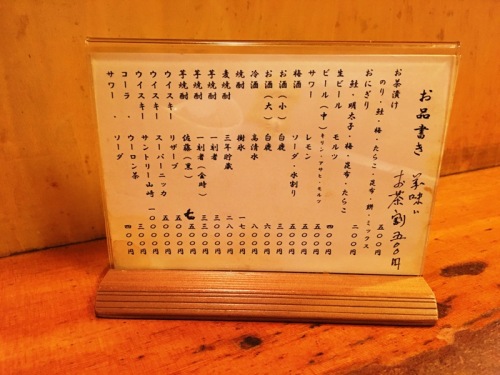 お品書き
美味い お茶割 五〇〇円
お茶漬け
のり・鮭・梅・たらこ・昆布・ ・ミックス 五〇〇円
おにぎり
鮭・明太子・梅・昆布・たらこ 二〇〇円
生ビール モルツ 四〇〇円
ビール（中） キリン・アサヒ・モルツ 五〇〇円
サワー レモン 五〇〇円
梅酒 ソーダ、水割り 五〇〇円
お酒（小） 白鹿 三〇〇円
お酒（大） 白鹿 六〇〇円
冷酒 高清水 八〇〇円
焼酎 樹氷 一七〇〇円
麦焼酎 三年貯蔵 二八〇〇円
芋焼酎 一刻者 三三〇〇円
芋焼酎 一刻者（金時）
芋焼酎 佐藤（黒）
ウイスキー リザーブ
ウイスキー スーパーニッカ
ウイスキー サントリー山崎 一〇〇〇円
コーラ・ウーロン茶 三〇〇円
サワー・ソーダ 四〇〇円